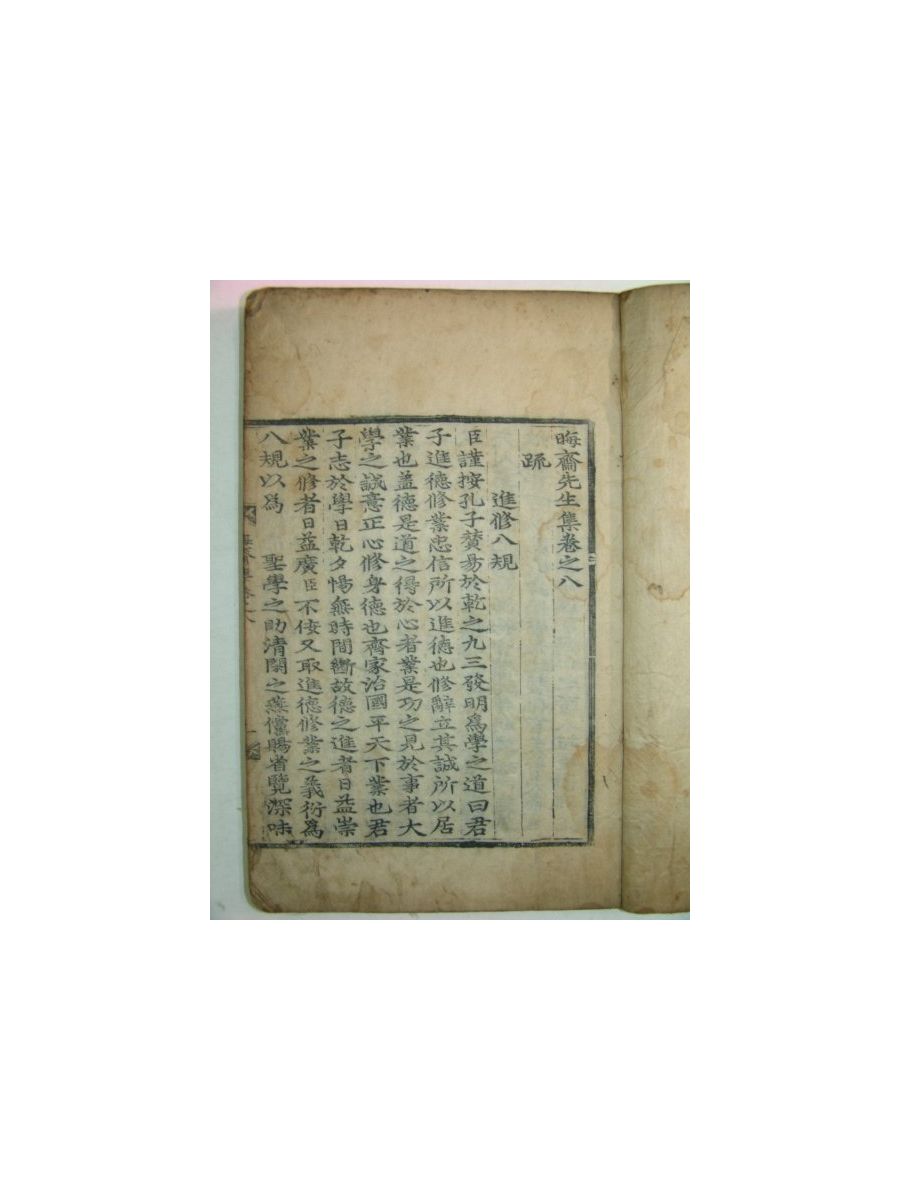 晦齋先生集卷之八
疏
進修八規
臣謹按孔子賛易於乾之九三發明爲學之道曰君
子進德修業忠信所以進德也修辭立其誠所以居
業也盖德是道之得於心者業是功之見於事者大
學之誠意正心修身德也齊家治國平天下業也君
子志於學日乾夕惕無時間斷故德之進者日益崇
業之修者日益廣臣不侫又取進德修業之義衍爲
八規以爲 聖學之助清閑之燕儻賜省覽深味